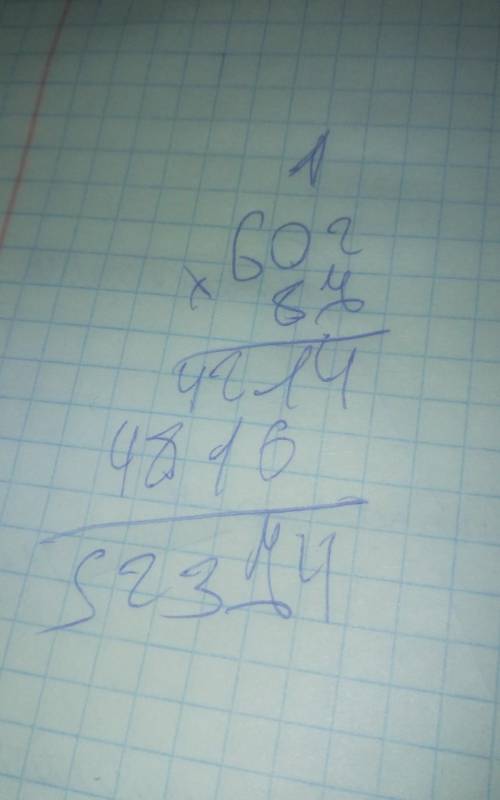 1
602
× 87
4214
4816
52374